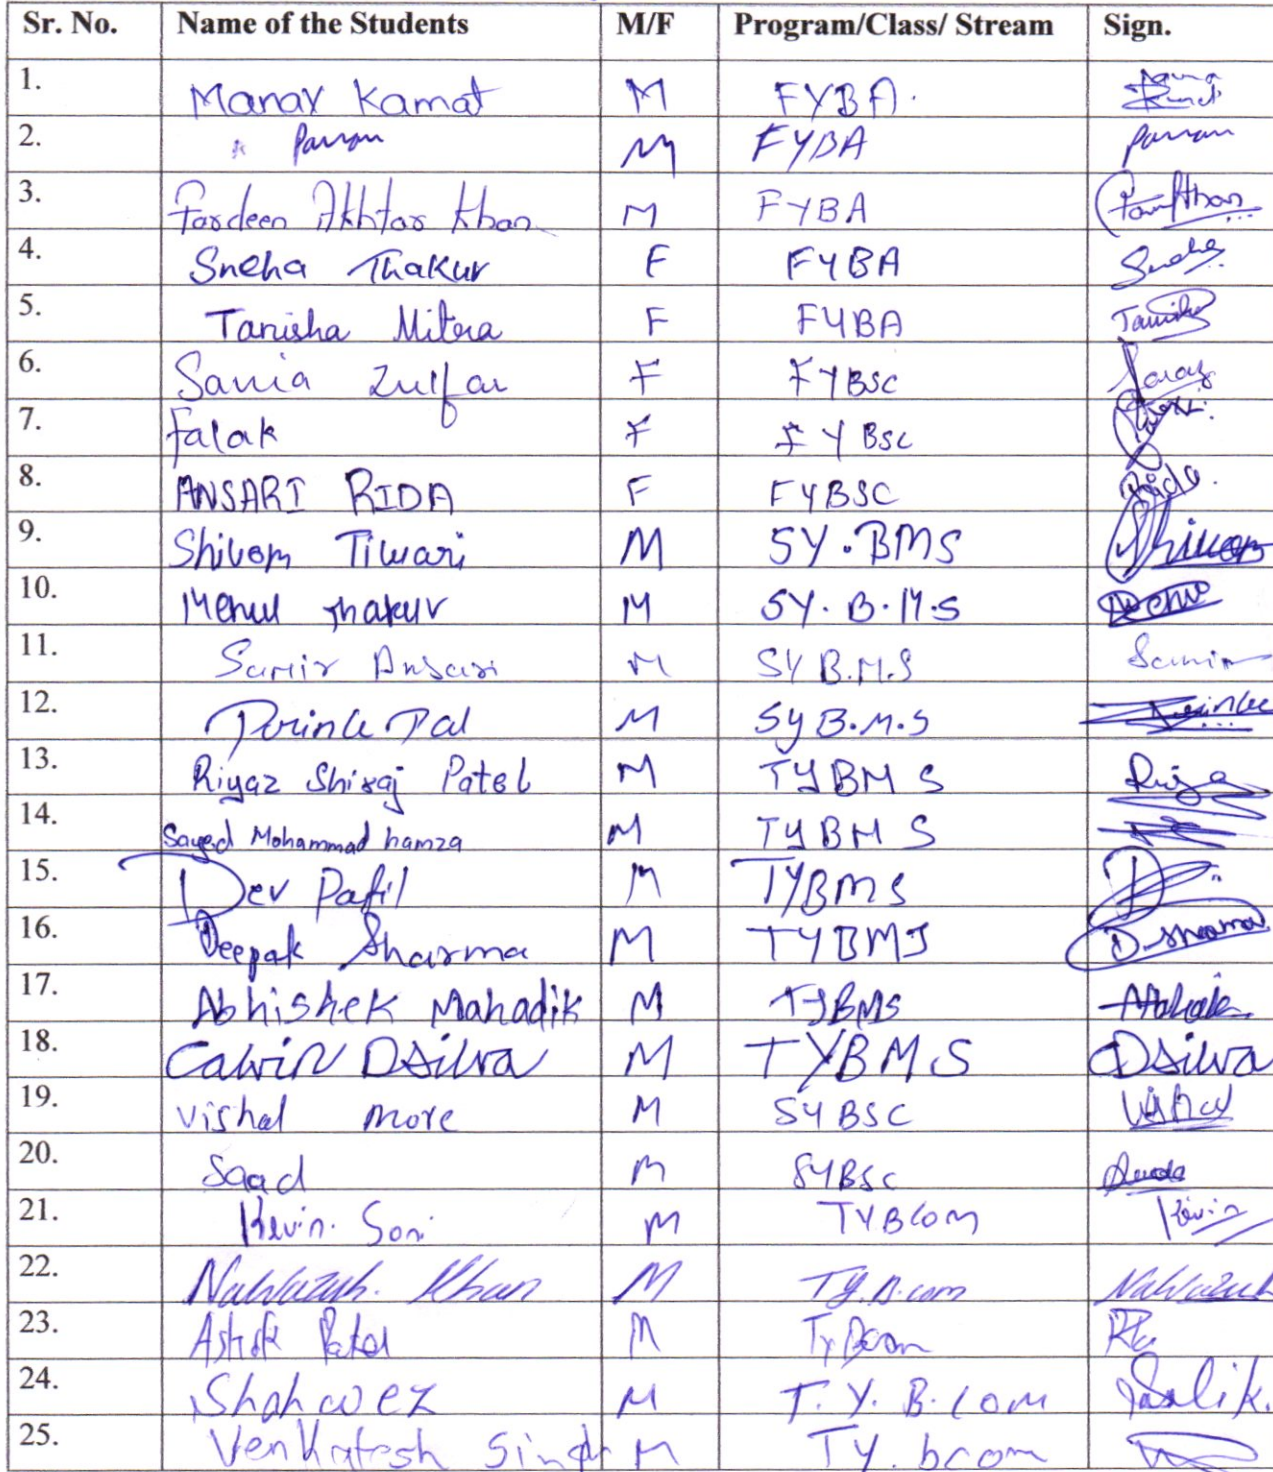 Sr. No. Name of the Students M/F Program/Class/ Stream Sign.
1. Manav Kamat M FYBA.
2. M FYBA
3. Fardeen Akhtar Khan M FYBA
4. Sneha Thakur F FYBA Sneha
5. Tanisha Mitra F FYBA Tanisha
6. Sania Zulfar F FYBSC
7. Falak F FYBSC
8. ANSARI RIDA F FYBSC Rida
9. Shivom Tiwari M SY.BMS Shivom
10. Mehul Thakur M SY.B.M.S
11. Samir Ansari M SYB.M.S Samir
12. Prince Pal M SYB.M.S
13. Riyaz Shiraj Patel M TYBMS Riyaz
14. Sayed Mohammad hamza M TYBMS
15. Dev Patil M TYBMS
16. Deepak Sharma M TYBMS D.sharma
17. Abhishek Mahadik M TYBMS
18. Calvin Dsilva M TYBMS Dsilva
19. Vishal more M SYBSC Vishal
20. Saad M SYBSC
21. Kevin. Soni M TYBCOM Kevin
22. Khan M TY.B.com
23. Patel M TyBcom
24. Shahwez M T.Y.B.Com
25. Venkatesh Singh M TY.bcom